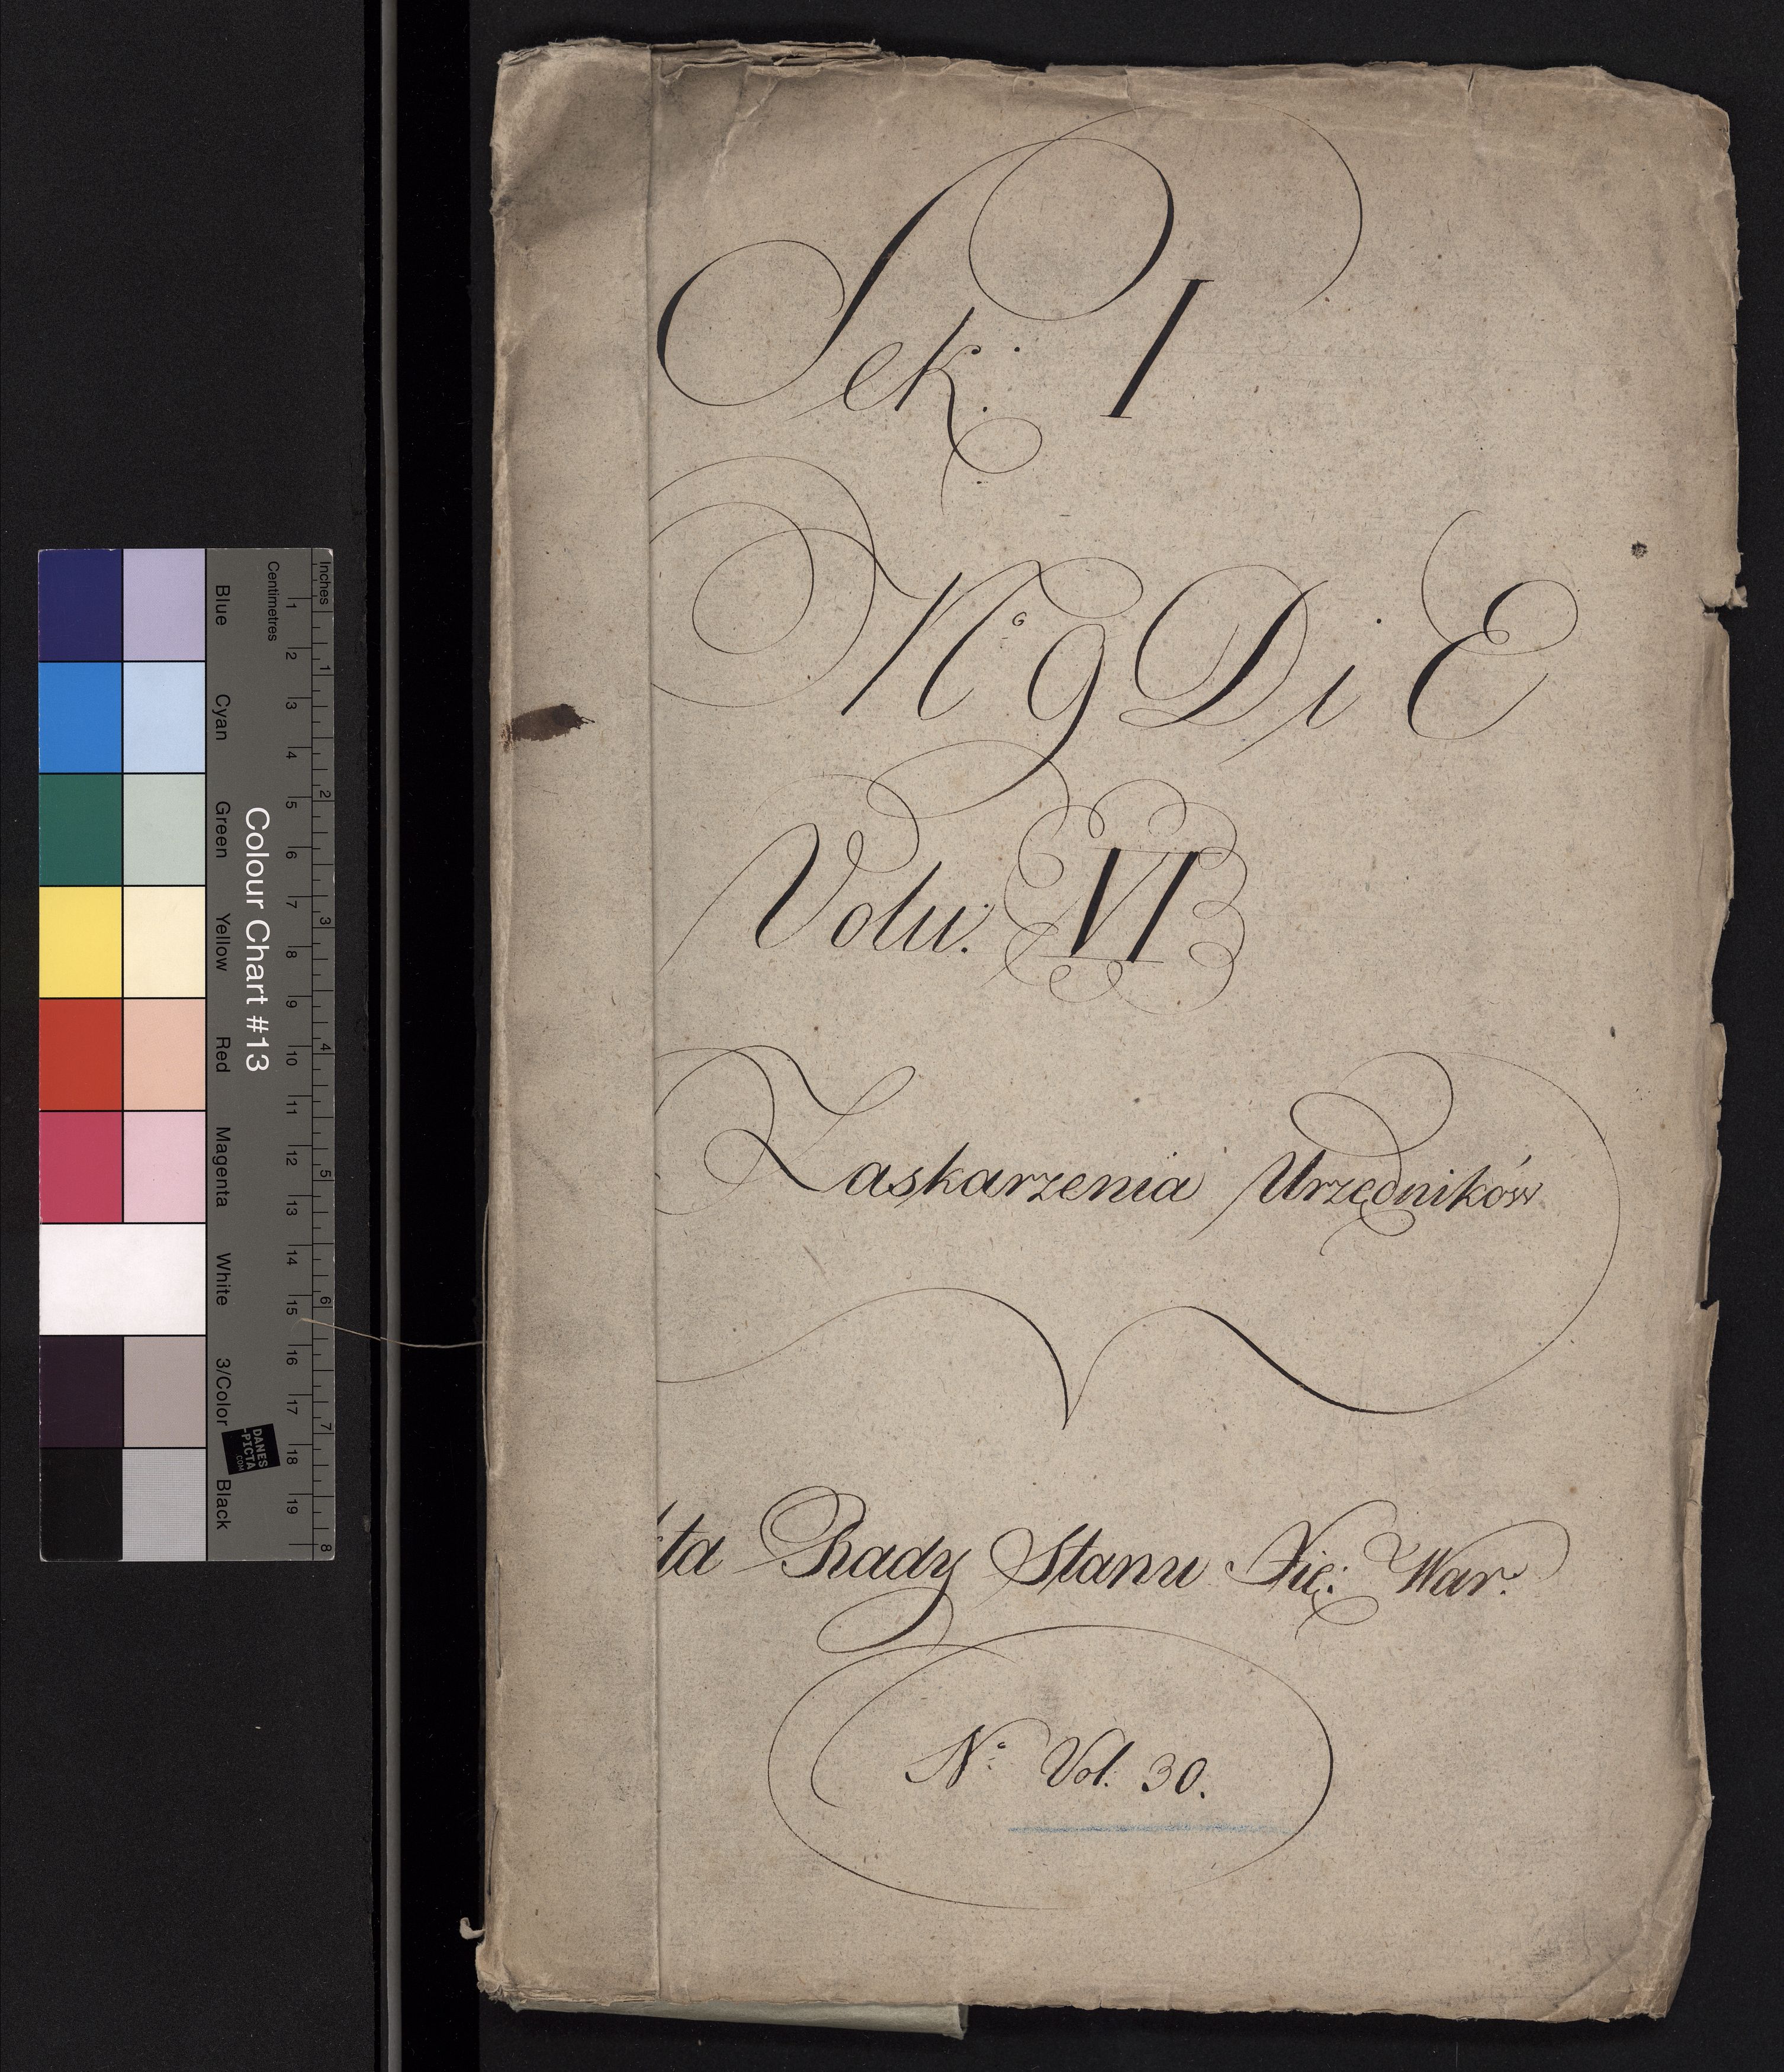 Sek: I
No 9 D i E
Volu. VI
Zaskarzenia Urzędników
kta Rady Stanu Xię: War:
No Vol. 30.
Colour Chart #13
Inches
Centimetres
1 2 3 4 5 6 7 8
1 2 3 4 5 6 7 8 9 10 11 12 13 14 15 16 17 18 19
Blue
Cyan
Green
Yellow
Red
Magenta
White
3/Color
Black
DANES
-PICTA
.COM